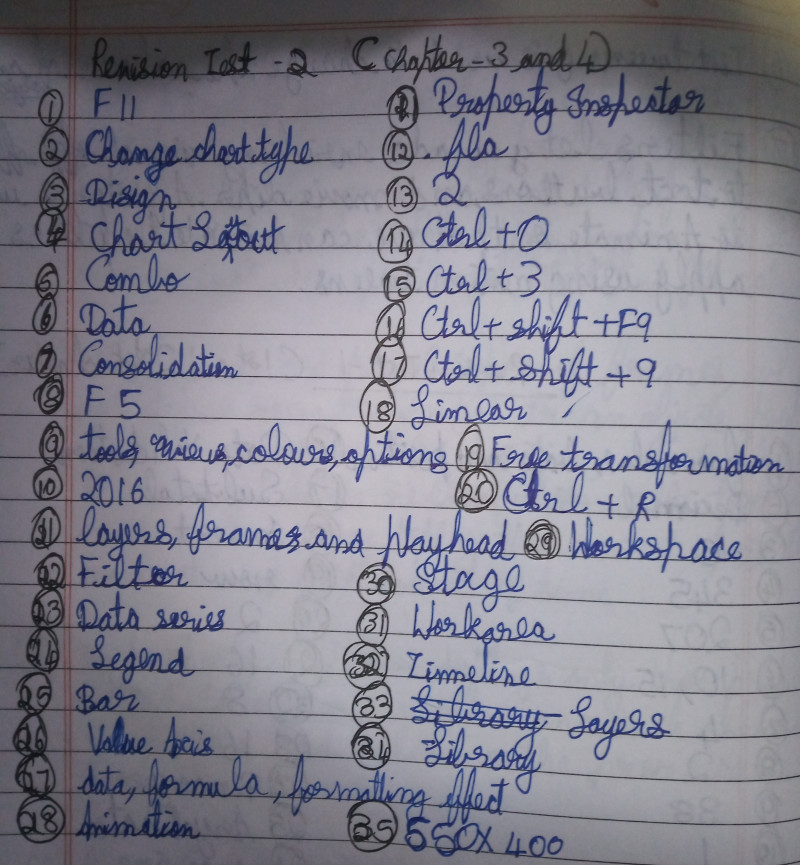 Revision Test - 2 (Chapter - 3 and 4)
1 F11
2 Change chart type
3 Disign
4 Chart Layout
5 Combo
6 Data
7 Consolidation
8 F5
9 tools, views, colours, options
10 2016
11 Property Inspector
12 .fla
13 2
14 Ctrl+O
15 Ctrl+3
16 Ctrl+shift+F9
17 Ctrl+shift+9
18 Linear
19 Free transformation
20 Ctrl+R
21 layers, frames and playhead
22 Filter
23 Data series
24 Legend
25 Bar
26 Value Axis
27 data, formula, formatting effect
28 Animation
29 Workspace
30 Stage
31 Workarea
32 Timeline
33 Library Layers
34 Library
35 550X400